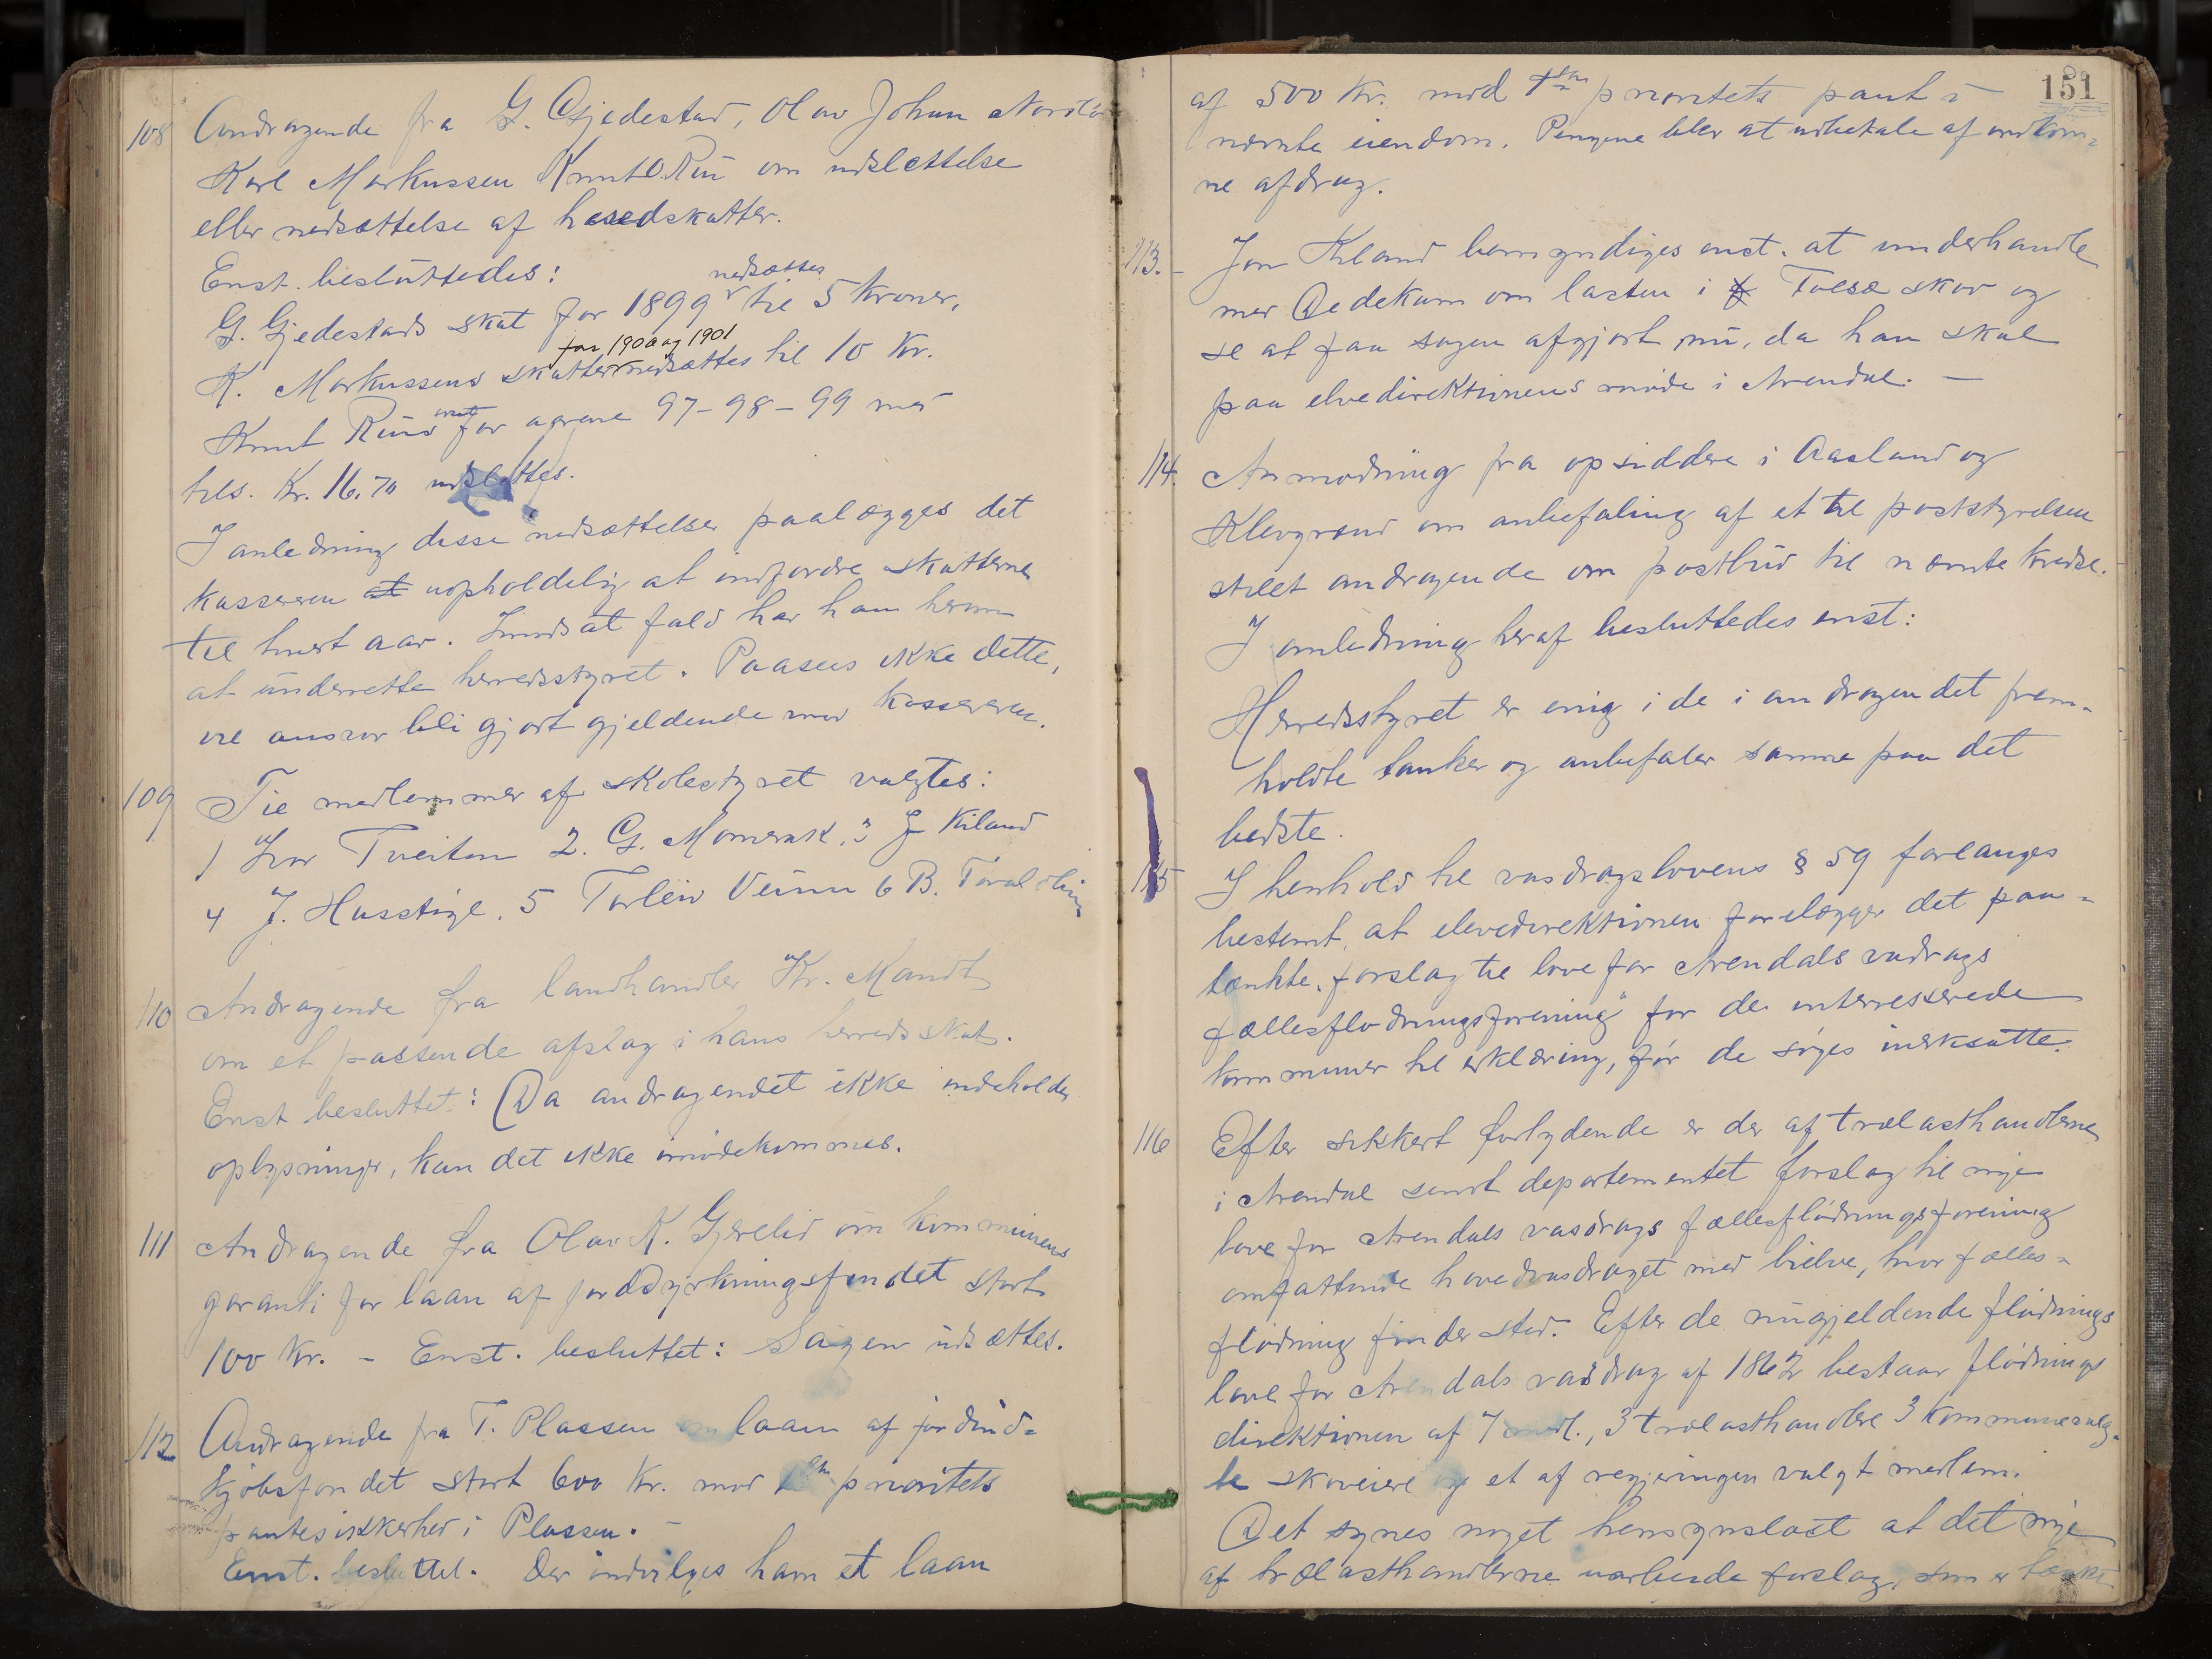 108 Andragende fra G. Gjedestad, Olav Johan
Karl Markussen Knut O. Rui om udslettelse
eller nedsættelse af heredskatter.
Enst. besluttedes:
nedsættes
G. Gjedestads skat for 1899 til 5 kroner,
for 1900 og 1901
K. Markussens skatter nedsættes til 10 Kr.
Knut Ruis for aarene 97-98-99 med
tils. Kr. 16.70 udslettes.
I anledning disse nedsættelser paalægges det
kassereren at uopholdelig at indfordre skatterne
til hvert aar. I modsat fald har han herom
at underrette herredsstyret. Paasees ikke dette,
vil ansvar bli gjort gjeldende mod kassereren.
109 Til medlemmer af skolestyret valgtes:
1 Tveiten 2. G. Momrak, 3 J Kiland
4 J. Husstøyl. 5 Torleiv Veum 6 B.
110 Andragende fra landhandler Kr. Mandt
om et passende afslag i hans herredsskat.
Enst besluttet: Da andragendet ikke indeholder
oplysninger, kan det ikke imødekommes.
111 Andragende fra Olav K. Gjerelid om kommunens
garanti for laan af jorddyrkningsfondet stort
100 Kr. - Enst. besluttet: Sagen udsættes.
112 Andragende fra T. Plassen om laan af jordind-
kjøbsfondet stort 600 Kr. mod 1ste prioritets
pantesikkerhed i Plassen. -
Enst. besluttet. Der indvilges ham et laan
151
af 500 Kr. mod 1ste prioritets pant i
nævnte eiendom. Pengene blev at udbetale af indkom-
ne afdrag.
113. - Jon Kiland bemyndiges enst. at underhandle
med Dedekam om lasten i Tvese skov og
se at faa sagen afgjort nu, da han skal
paa elvedirektionens møde i Arendal. -
114. Anmodning fra opsiddere i Aasland og
Klevgrend om anbefaling af et til poststyrelsen
stilet andragende om postbud til nævnte kredse.
I anledning heraf besluttedes enst:
Herredsstyret er enig i de i andragendet frem-
holdte tanker og anbefaler samme paa det
bedste.
115 I henhold til vasdragslovens § 59 forlanges
bestemt, at elvedirektionen forelægger det paa-
tænkte "forslag til love for Arendals vasdrags
fællesflødningsforening" for de interesserede
kommuner til erklæring, før de søges iverksatte.
116 Efter sikkert forlydende er der af trælasthandlerne
i Arendal sendt departementet forslag til nye
love for Arendals vasdrags fællesflødningsforening
omfattende hovedvasdraget med bielve, hvor fælles-
flødning finder sted. Efter de nugjeldende flødnings
love for Arendals vasdrag af 1862 bestaar flødnings
direktionen af 7 medl., 3 trælasthandlere 3 kommunevalg-
te skoveiere og et af regjeringen valgt medlem.
Det synes noget hensynsløst at det nye
af trælasthandlerne udarbeide forslag, som er tænkt